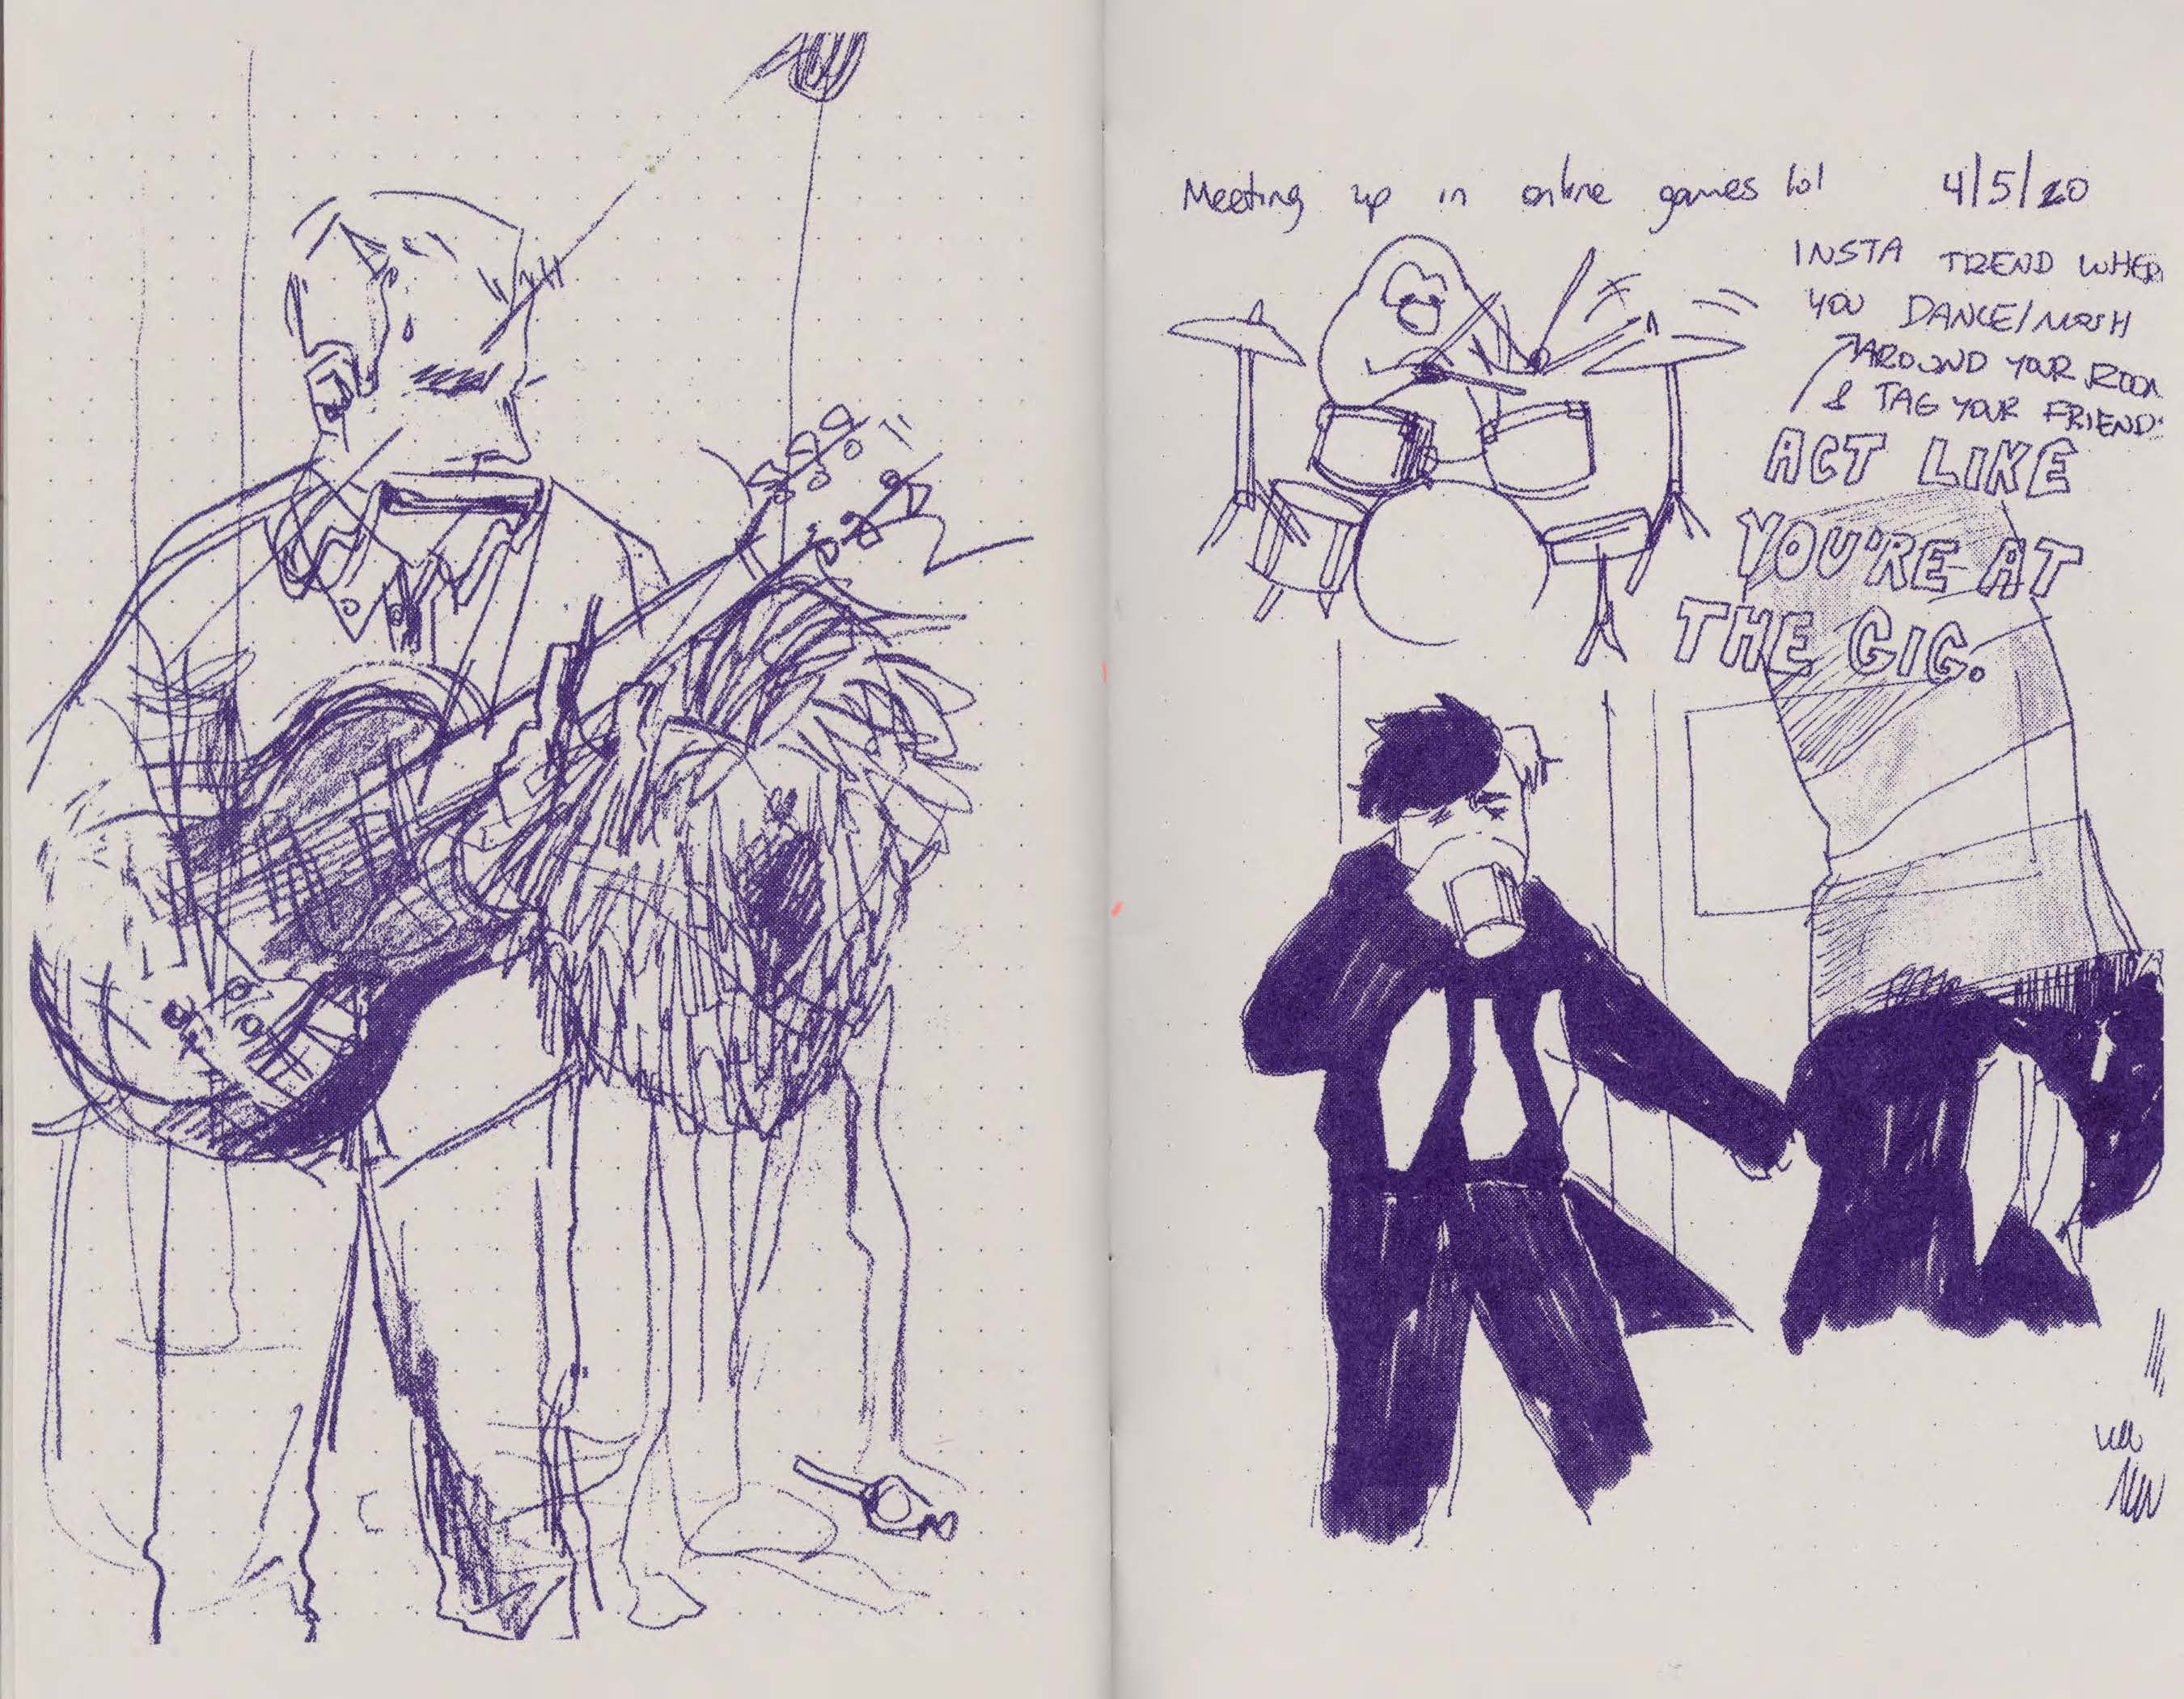 Meeting up in online games lol 4/5/20
INSTA TREND WHER
YOU DANCE/MOSH
AROUND YOUR ROOM
& TAG YOUR FRIENDS
ACT LIKE
YOU'RE AT
THE GIG.